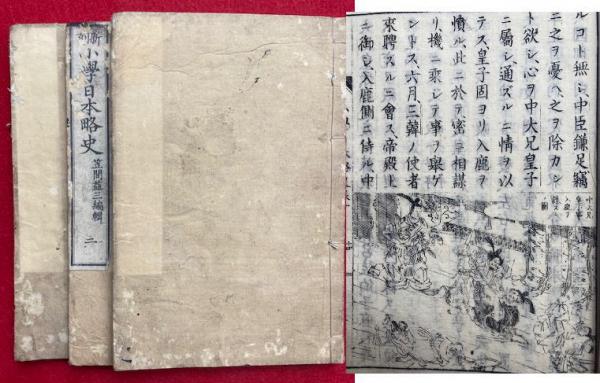 新刻
小學日本略史
笠間益三編輯
二
ルコト無シ、中臣鎌足竊
ニ之ヲ憂ヘ之ヲ除カン
ト欲シ、心ヲ中大兄皇子
ニ屬シ、通ズルニ情ヲ以
テス、皇子固ヨリ入鹿ヲ
憤ル、此ニ於テ密ニ相謀
リ、機ニ乘シテ事ヲ舉ゲ
ントス、六月、三韓ノ使者
來聘スルニ會ス、帝殿上
ニ御シ、入鹿側ニ侍ル、中